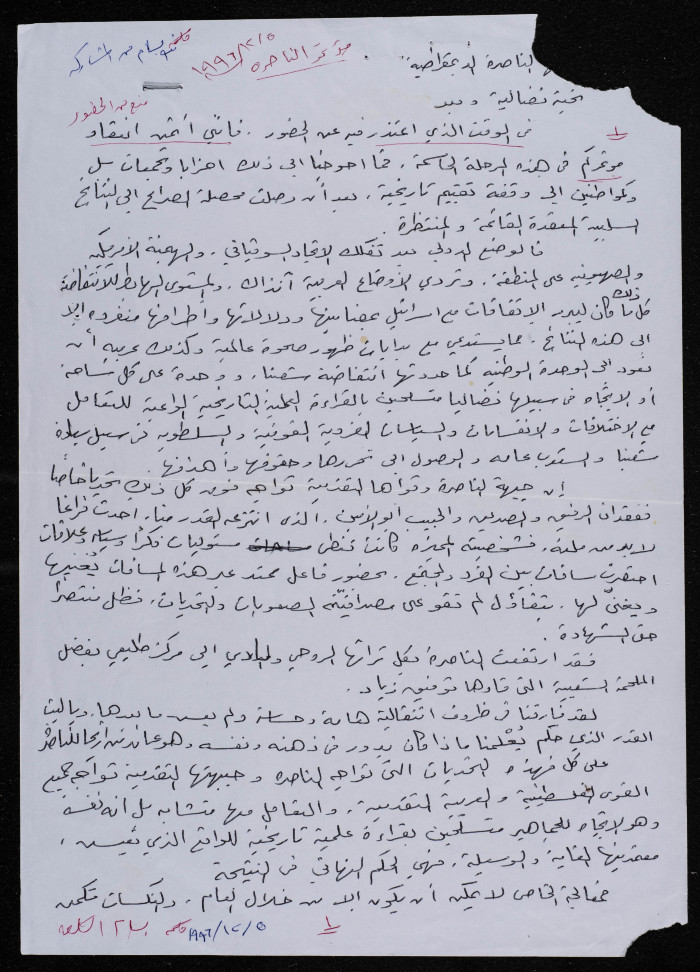 كلمة بسام من المشاركة
مؤتمر الناصرة ١٩٩٦/١٢/٥
الناصرة الديمقراطية
منع من الحضور
تحية نضالية وبعد
١
في الوقت الذي اعتذر فيه عن الحضور، فانني أثمن انعقاد
مؤتمركم في هذه المرحلة الحاسمة، فما احوجنا الى ذلك احزابا وتجمعات بل
وكمواطنين الى وقفة تقييم تاريخية، بعد أن وصلت محصلة الصراع الى النتائج
السلبية المعقدة القائمة والمنتظرة.
فالوضع الدولي بعد تفكك الاتحاد السوفياتي، والهيمنة الأمريكية
والصهيونية على المنطقة، وتردي الأوضاع العربية آنذاك، والمستوى الهابط للانتفاضة
كل ذلك ما كان ليبرر الاتفاقات مع اسرائيل بمضامينها ودلالاتها وأطرافها منفردة
الى هذه النتائج، مما يستدعي مع بدايات ظهور صحوة عالمية وكذلك عربية أن
نعود الى الوحدة الوطنية كما حددتها انتفاضة شعبنا، وحدة على كل ساحة
أو الاتجاه في سبيلها نضاليا متسلحين بالقراءة العلمية التاريخية الواعية للتعامل
مع الاختلافات والانقسامات والسياسات الفردية الفوقية والسلطوية في سبيل سيادة
شعبنا والشعوب عامة والوصول الى تحررها وحقوقها وأهدافها.
إن جبهة الناصرة وقواها التقدمية تواجه فوق كل ذلك تحديا خاصا
ففقدان الرفيق والصديق والحبيب أبو الأمين، الذي انتزعه القدر منا، احدث فراغا
لا بد من ملئه، فشخصيته المميزة كانت تغطي مسئوليات فكرا وسياسة وعلاقات
اختصرت مسافات بين الفرد والمجتمع، بحضور فاعل ممتد عبر هذه المسافات يُغنيها
ويغني لها، بتفاؤل لم تقو على مصداقيته الصعوبات والتحديات، فظل منتصرا
حتى الشهادة.
فقد ارتفعت الناصرة بكل تراثها الروحي والمادي الى مركز طليعي بفضل
الملحمة الشعبية التي قادها توفيق زياد.
لقد فارقتنا في ظروف انتقالية هامة وحساسة ولم يعس ما بعدها، وياليت
القدر الذي حكم يُعلمنا ماذا كان يدور في ذهنه ونفسه وهو عائد من أريحا للناصرة
على كل فهذه التحديات التي تواجه الناصرة وجبهتها التقدمية تواجه جميع
القوى الفلسطينية والعربية التقدمية، والتعامل معها متشابه بل انه نفسه
وهو الاتجاه للجماهير متسلحين بقراءة علمية تاريخية للواقع الذي نعيش،
معتمدينها الغاية والوسيلة، فهي الحكم النهائي في النتيجة
فمعالجة الخاص لا يمكن أن يكون الا من خلال العام، والنكسات تكمن
١
كلمة بسام الشكعة ١٩٩٦/١٢/٥